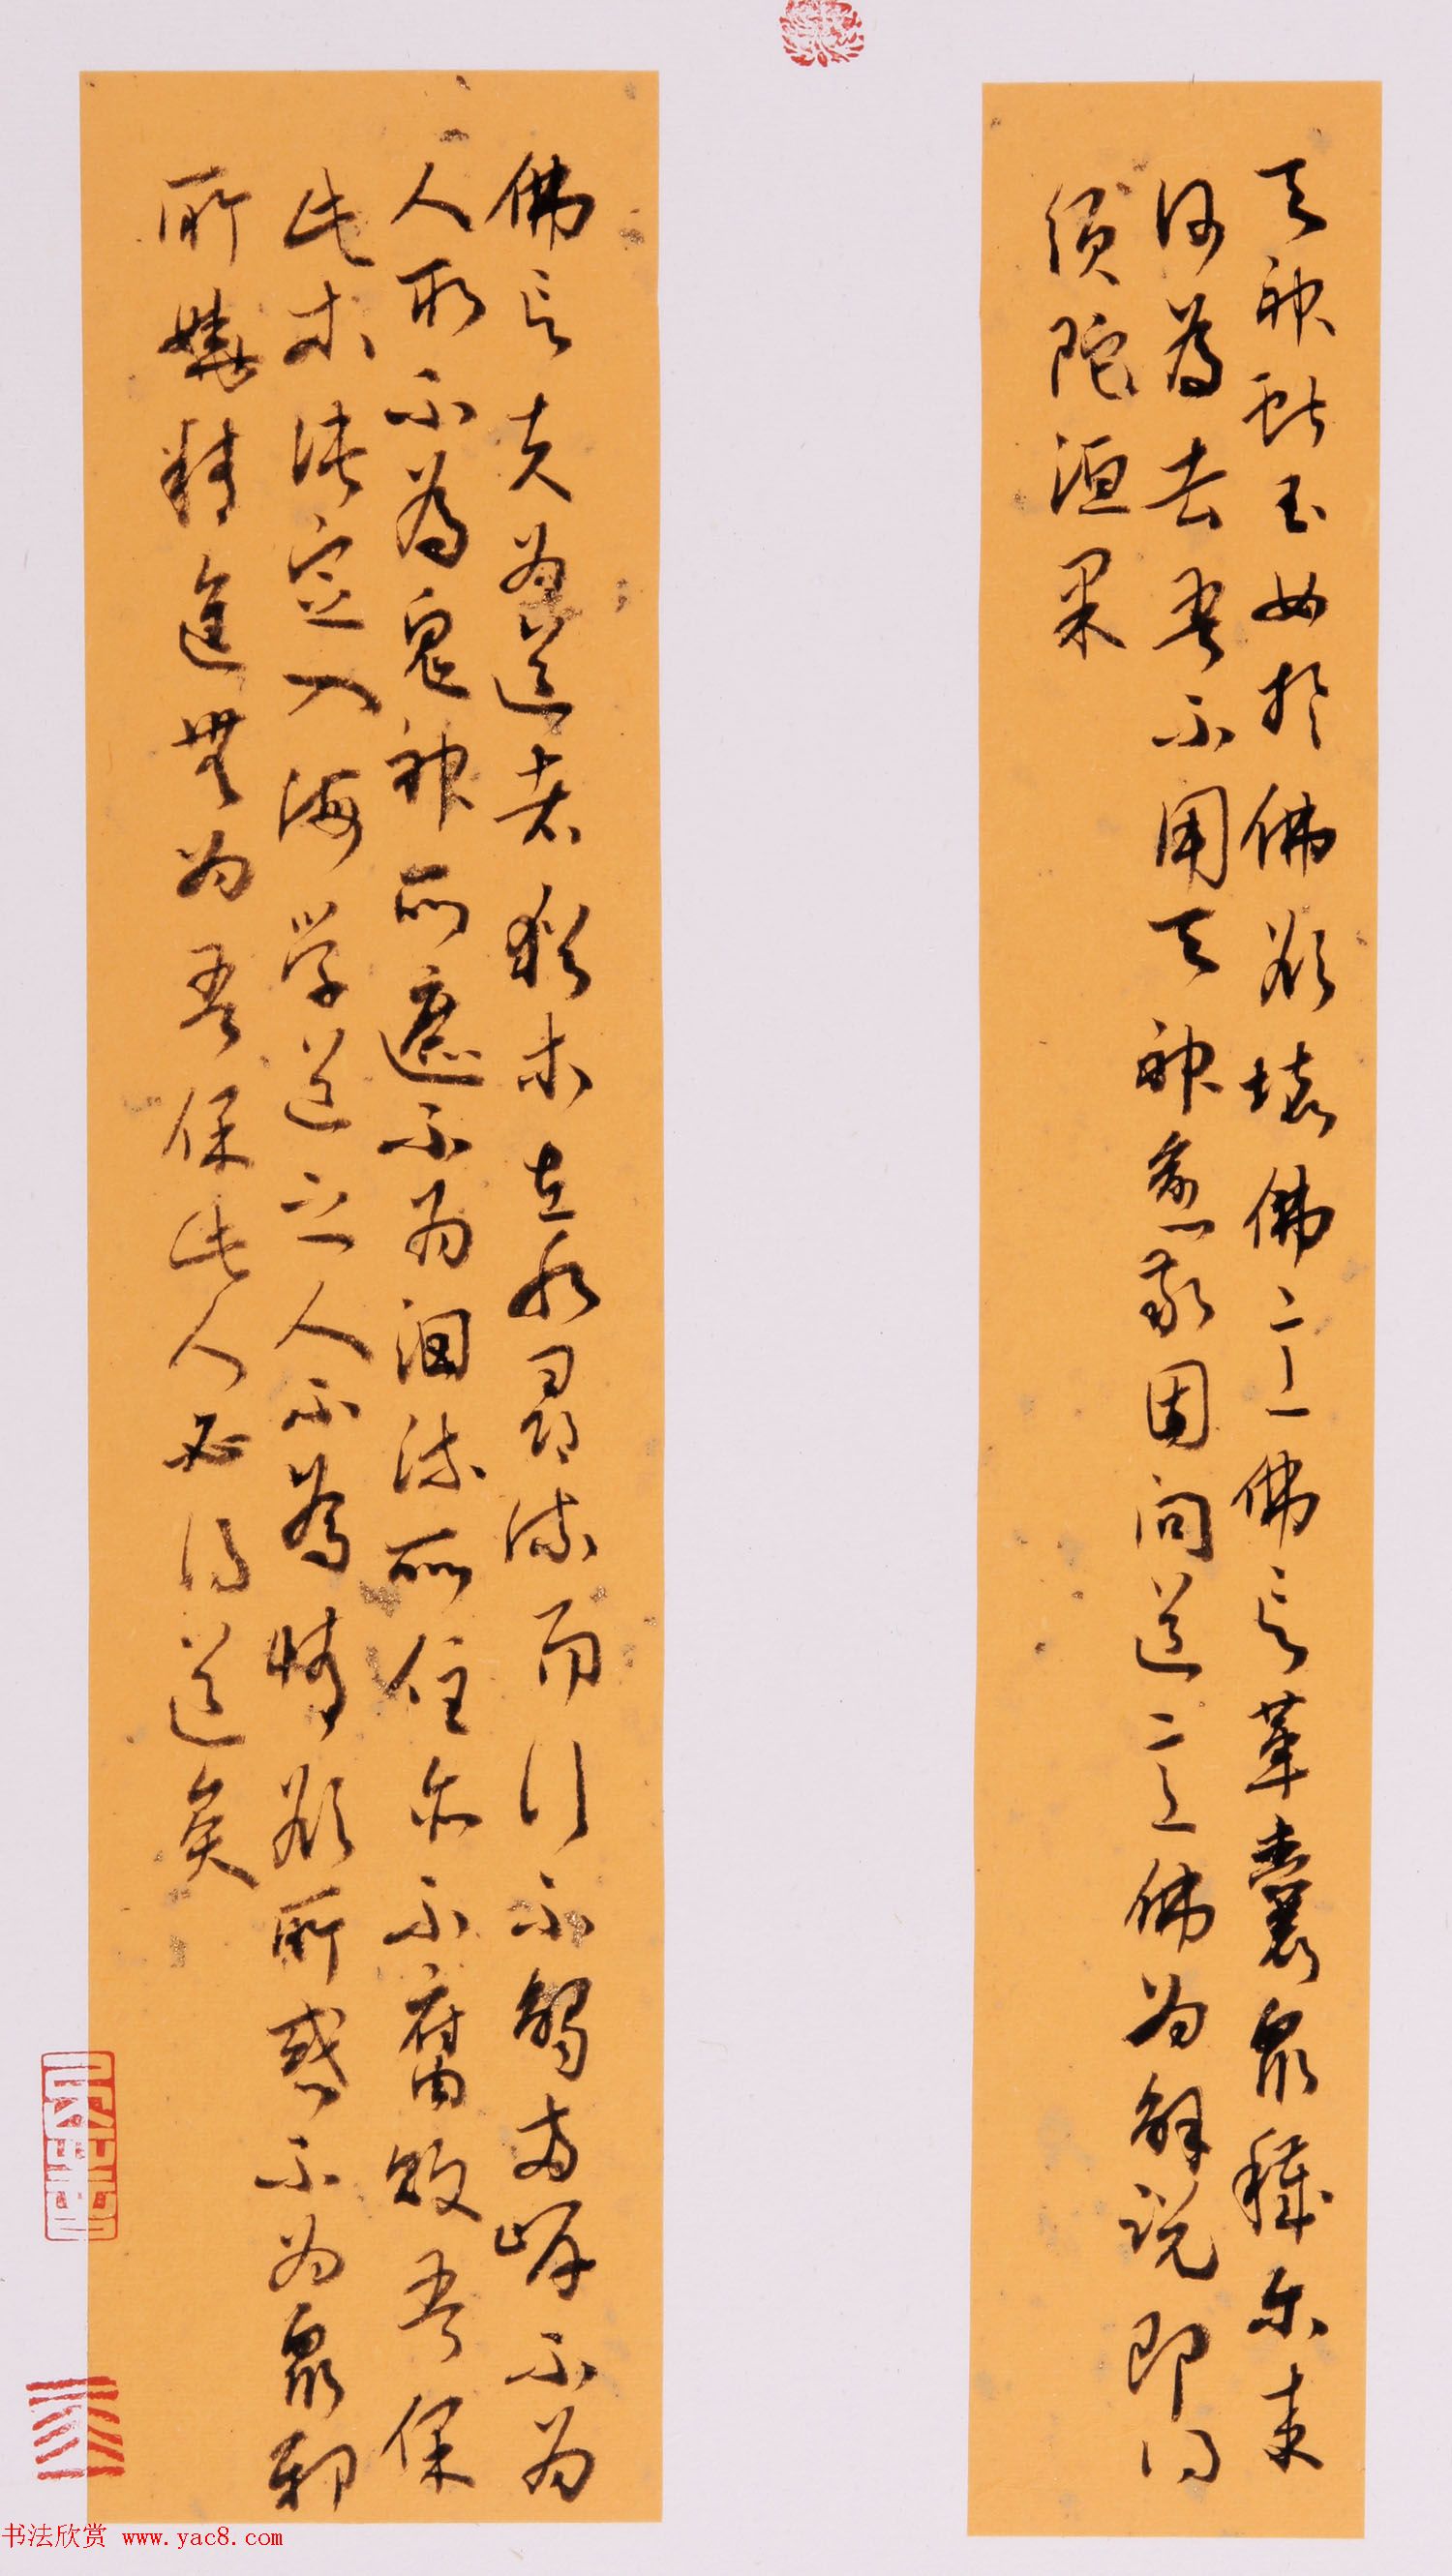 天神獻玉女於佛欲壞佛意佛言革囊眾穢尔來
何為去吾不用天神愈敬因問道意佛为解说即得
須陀洹果
佛言夫為道者猶木在水尋流而行不觸兩岸不为
人取不為鬼神所遮不为洄流所住亦不腐敗吾保
此木決定入海学道之人不為情欲所惑不为眾邪
所嬈精進無为吾保此人必得道矣
书法欣赏 www.yac8.com